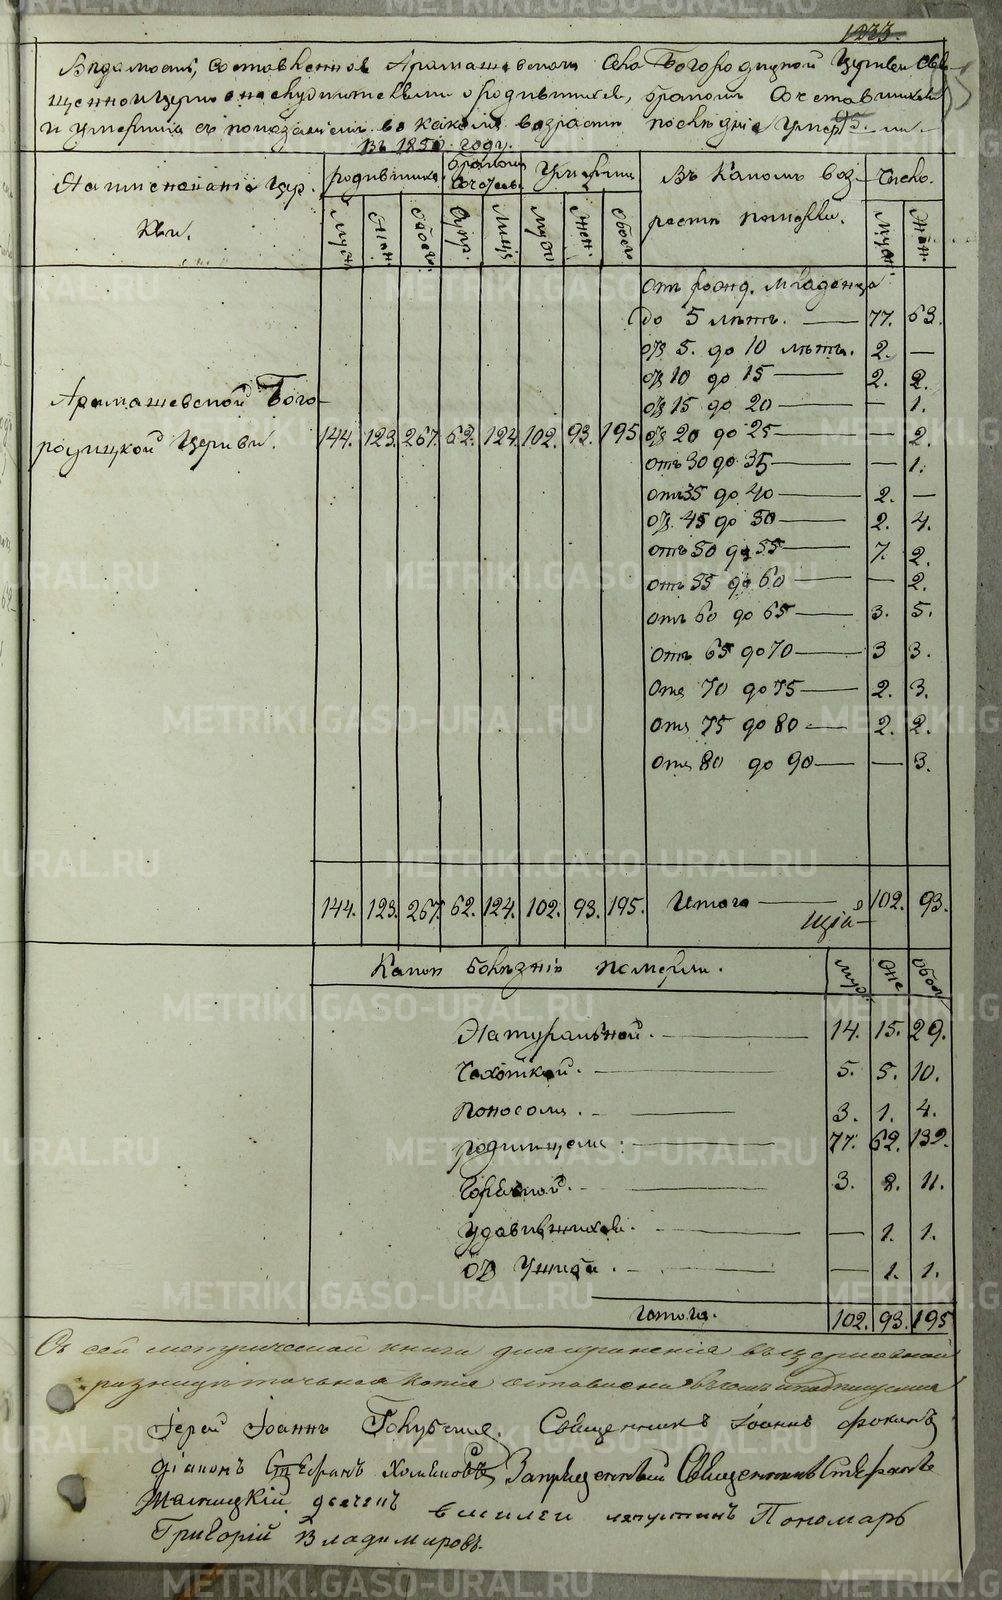 1233.
Ведомость, составленная Арамашевскаго Села Богородицкой Церкви Священноцерковнослужителями о родившихся, браком сочетавшихся
и умерших съ показаниемъ въ какомъ возрасте последние умерли
въ 1850. году.
95.
Наименование Церкви.
родившихся
браком сочетав.
Умерших
Въ каком возрасте померли.
Число.
Муж. Жен. Обоего. Супр. Лицъ Муж. Жен. Обоего Муж. Жен.
от рожд. младенца
до 5 летъ. 77. 63.
от 5. до 10 летъ. 2. —
от 10 до 15 — 2. 2.
от 15 до 20 — — 1.
Арамашевской Богородицкой Церкви. 144. 123. 267. 62. 124. 102. 93. 195
от 20 до 25 — — 2.
отъ 30 до 35 — — 1.
отъ 35 до 40 — 2. —
от 45 до 50 — 2. 4.
отъ 50 до 55 — 7. 2.
отъ 55 до 60 — — 2.
отъ 60 до 65 — 3. 5.
отъ 65 до 70 — 3 3.
отъ 70 до 75 — 2. 3.
отъ 75 до 80 — 2. 2.
отъ 80 до 90 — — 3.
144. 123. 267. 62. 124. 102. 93. 195. Итого — 102. 93.
Какою болезнию померли. Муж. Же Обоег
Натуральной. — 14. 15. 29.
Чахоткой. — 5. 5. 10.
Поносомъ. — 3. 1. 4.
родимцемъ — 77. 62. 139.
Горячкой. — 3. 8. 11.
Удавившихся. — — 1. 1.
— 1. 1.
Итого. 102. 93. 195
Съ сей метрической книги для хранения въ церковной
ризнице точная копия оставлена въ томъ и подпишемся
Іерей Іоаннъ Голубчик. Священникъ Іоаннъ Фокинъ
Діаконъ Стефанъ Хомяковъ, Запрещенный Священникъ Стефанъ
дьячекъ Василей Лапустинъ Пономарь
Григорій Владимировъ.
METRIKI.GASO-URAL.RU